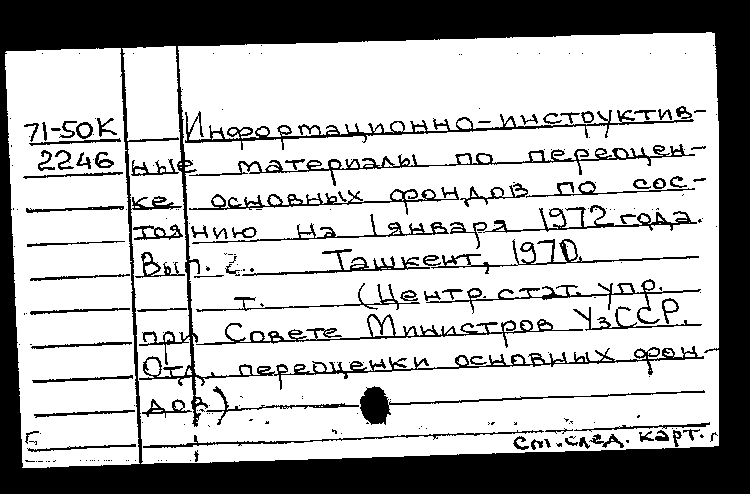 71-50К Информационно-инструктив-
2246 ные материалы по переоцен-
ке основных фондов по сос-
тоянию на 1 января 1972 года.
Вып. 2. Ташкент, 1970.
т. (Центр. стат. упр.
при Совете Министров УзССР.
Отд. переоценки основных фон-
дов).
См. след. карт.